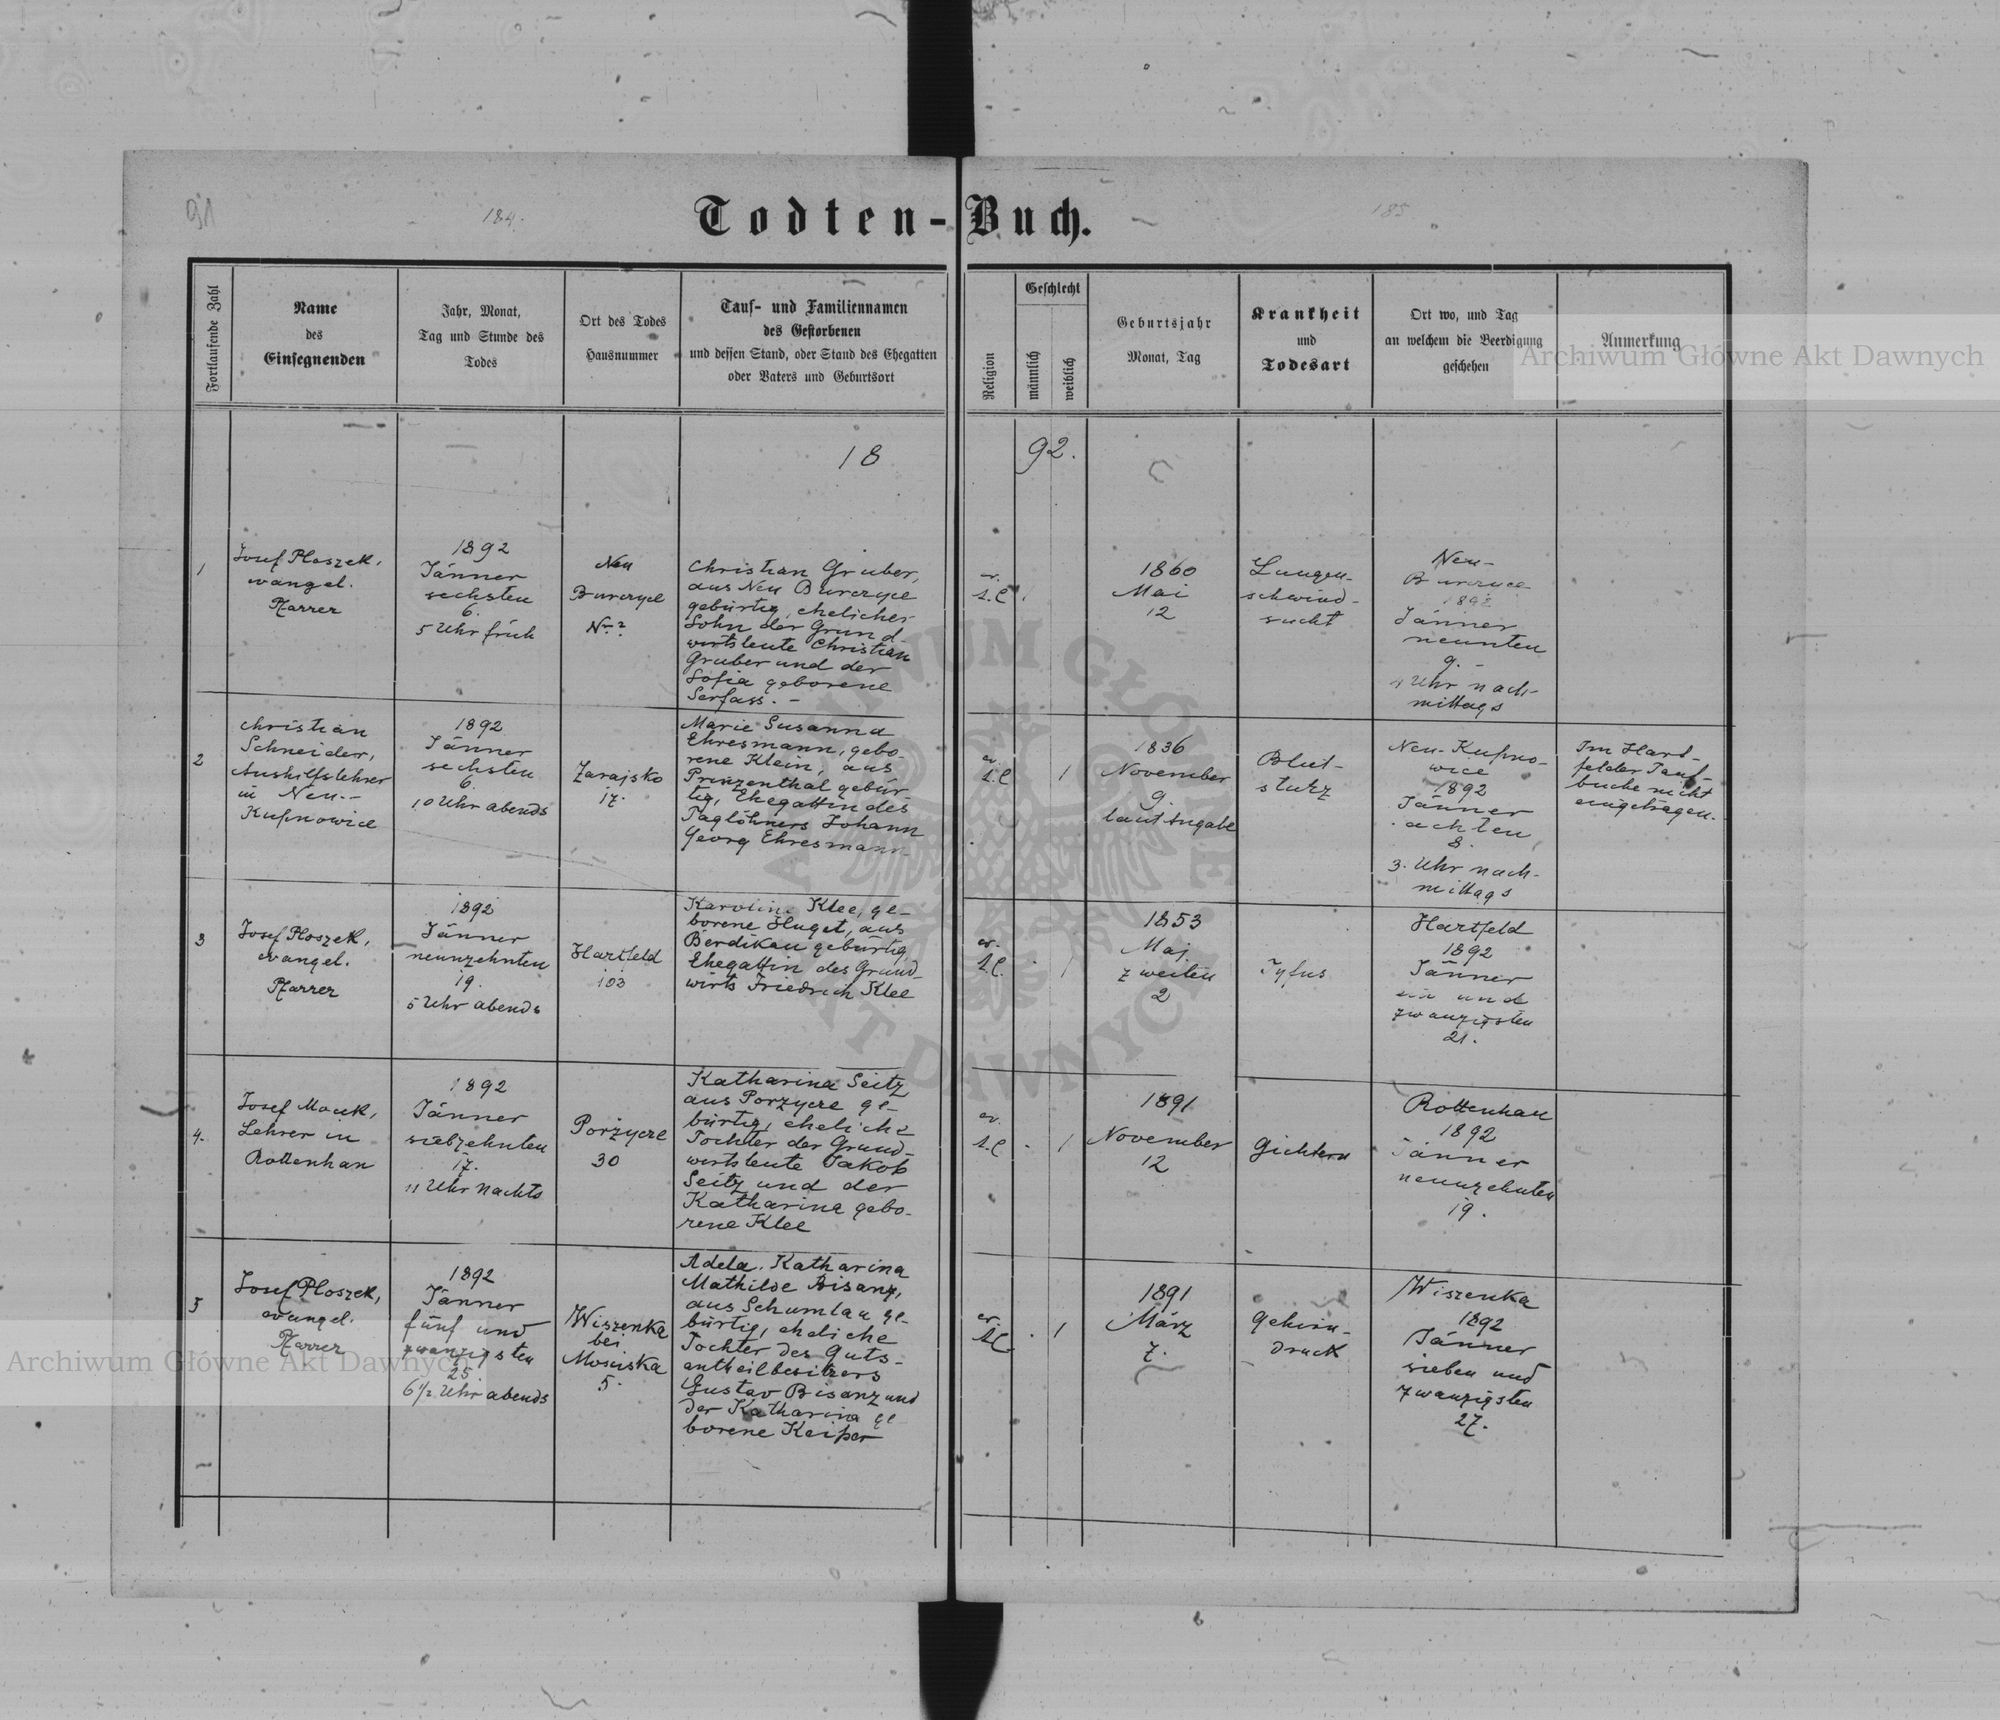 91
184.
185
Todten-Buch.
Fortlaufende Zahl
Name
des
Einsegnenden
Jahr, Monat,
Tag und Stunde des
Todes
Ort des Todes
Hausnummer
Tauf- und Familiennamen
des Gestorbenen
und dessen Stand, oder Stand des Ehegatten
oder Vaters und Geburtsort
Religion
Geschlecht
männlich
weiblich
Geburtsjahr
Monat, Tag
Krankheit
und
Todesart
Ort wo, und Tag
an welchem die Beerdigung
geschehen
Anmerkung
Archiwum Główne Akt Dawnych
18 92.
1
Josef Ploszek,
evangel.
Pfarrer
1892
Jänner
sechsten
6.
5 Uhr früh
Neu
Burczyce
Nr. 2
Christian Gruber,
aus Neu Burczyce
gebürtig, ehelicher
Sohn der Grund-
wirtsleute Christian
Gruber und der
Sofia geborene
Serfass. -
ev.
A.C.
1
1860
Mai
12
Lungen-
schwind-
sucht
Neu-
Burczyce
1892
Jänner
neunten
9.
Uhr nach-
mittags
2
Christian
Schneider,
Aushilfslehrer
in Neu-
Kupnowice
1892
Jänner
sechsten
6.
10 Uhr abends
Zarajsko
17.
Marie Susanna
Ehresmann, gebo-
rene Klein, aus
Prinzenthal gebür-
tig, Ehegattin des
Taglöhners Johann
Georg Ehresmann
ev.
A.C
1
1836
November
9.
laut Angabe
Blut-
sturz
Neu-Kupno-
wice
1892
Jänner
achten
8.
3. Uhr nach-
mittags
Im Hart-
felder Tauf-
buche nicht
eingetragen.
3
Josef Ploszek,
evangel.
Pfarrer
1892
Jänner
neunzehnten
19.
5 Uhr abends
Hartfeld
103
Karolina Klee, ge-
borene Huget, aus
Berdikau gebürtig
Ehegattin des Grund-
wirts Friedrich Klee
ev.
A.C.
1
1853
Mai
zweiten
2
Tyfus
Hartfeld
1892
Jänner
ein und
zwanzigsten
21.
4.
Josef Macek,
Lehrer in
Rottenhan
1892
Jänner
siebzehnten
17.
11 Uhr Nachts
Porzycze
30
Katharina Seitz
aus Porzycze ge-
bürtig, eheliche
Tochter der Grund-
wirtsleute Jakob
Seitz und der
Katharina gebo-
rene Klee
ev.
A.C
1
1891
November
12
Gichtern
Rottenhan
1892
Jänner
neunzehnten
19.
5
Josef Ploszek,
evangel.
Pfarrer
1892
Jänner
fünf und
zwanzigsten
25.
6 1/2 Uhr abends
Wiszenka
bei
Mosciska
5.
Adela Katharina
Mathilde Bisanz,
aus Schumlau ge-
bürtig, eheliche
Tochter des Guts-
antheilbesitzers
Gustav Bisanz und
der Katharina ge
borene Keiper
ev.
A.C
1
1891
März
7.
Gehirn-
druck
Wiszenka
1892
Jänner
sieben und
zwanzigsten
27.
Archiwum Główne Akt Dawnych
ARCHIWUM GŁÓWNE AKT DAWNYCH